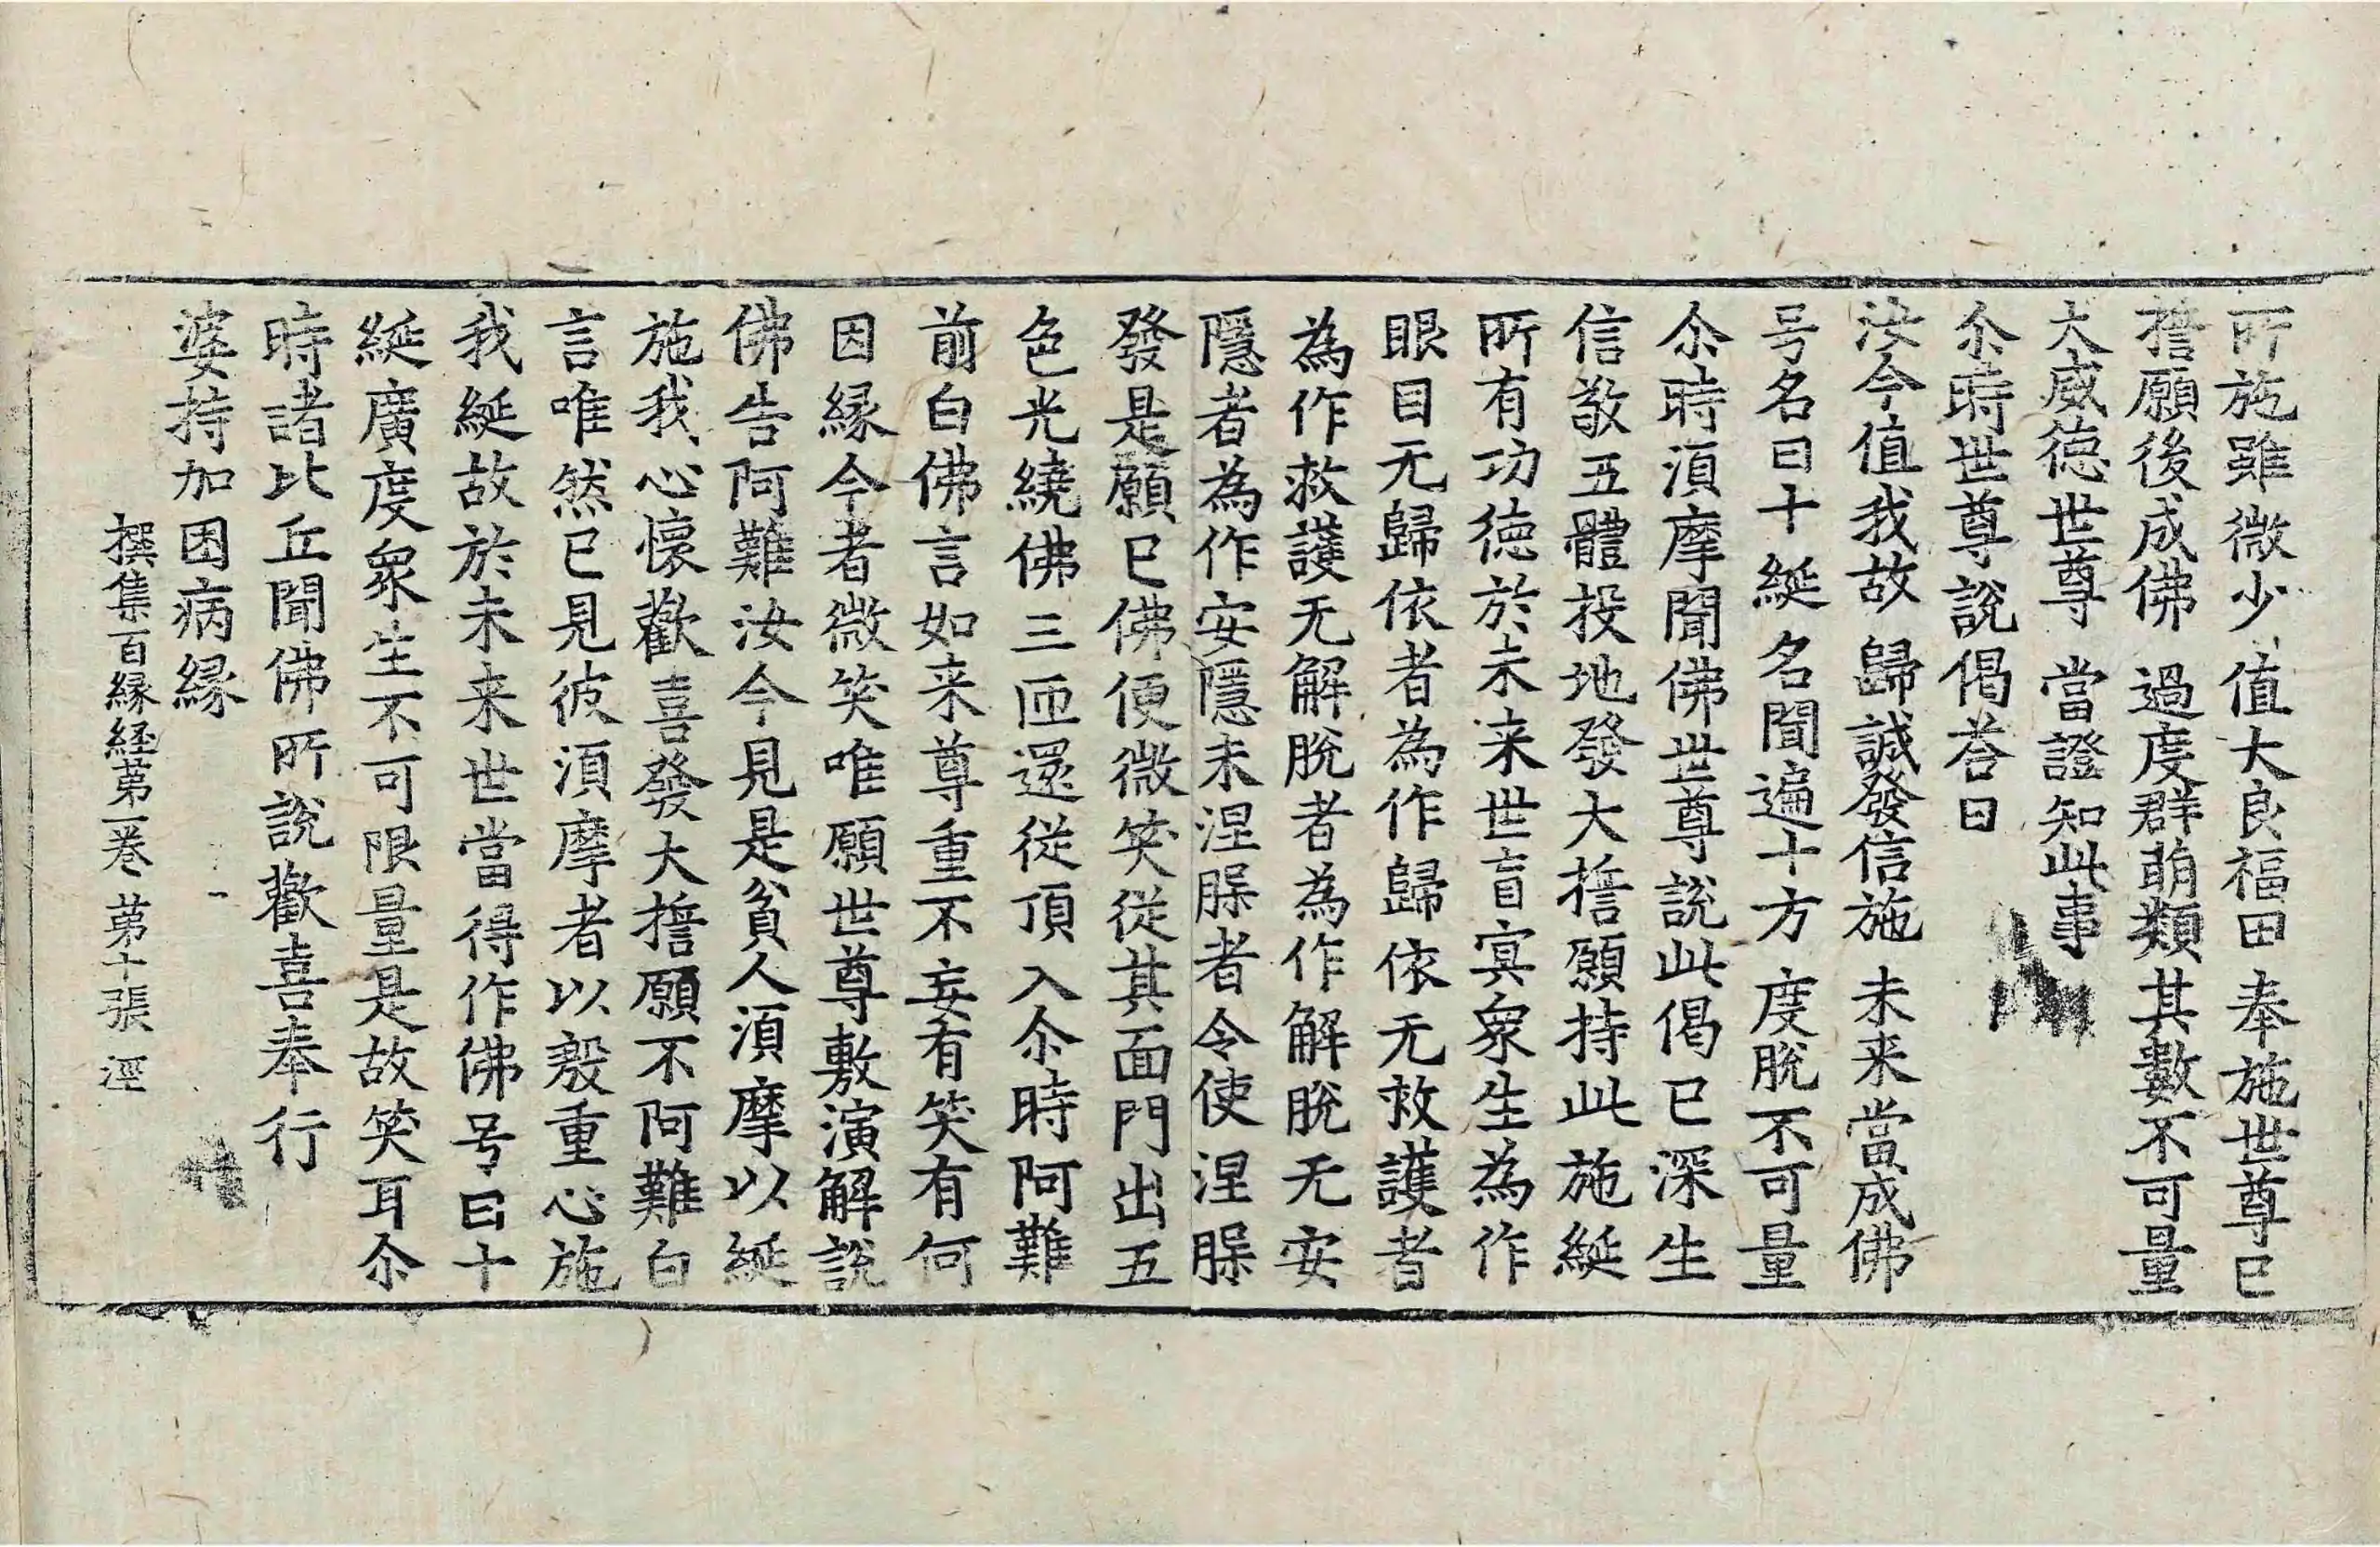 所施雖微少 值大良福田 奉施世尊已
擔願後成佛 過度群萌類 其數不可量
大威德世尊 當證知此事
尒時世尊說偈荅曰
汝今值我故 歸誠發信施 未来當成佛
号名曰十綖 名聞遍十方 度脫不可量
尒時湏摩聞佛世尊說此偈已深生
信敬五體投地發大擔願持此施綖
所有功德於未来世盲冥衆生為作
眼目无歸依者為作歸依无救護者
為作救護无解脫者為作解脫无安
隱者為作安隱未涅脲者令使涅脲
發是願已佛便微笑從其面門出五
色光繞佛三匝還從頂入尒時阿難
前白佛言如来尊重不妄有笑有何
因縁今者微笑唯願世尊敷演解說
佛告阿難汝今見是貧人湏摩以綖
施我心懷歡喜發大擔願不阿難白
言唯然已見彼湏摩者以慇重心施
我綖故於未来世當得作佛号曰十
綖廣度衆生不可限量是故笑耳尒
時諸比丘聞佛所說歡喜奉行
婆持加困病縁
撰集百縁経苐一巻 苐十張 涇